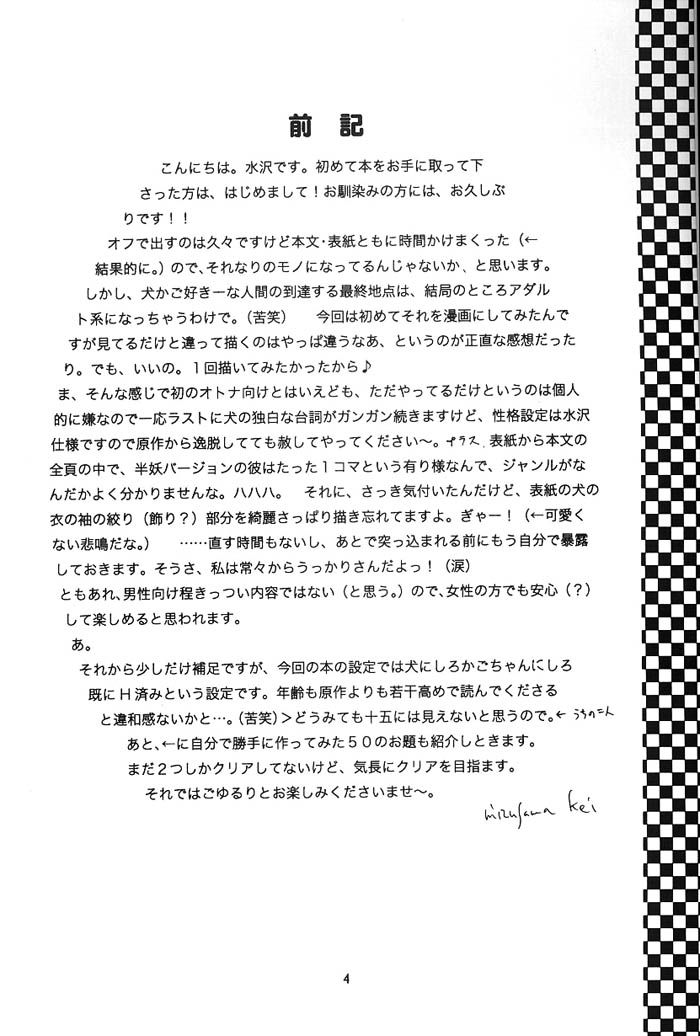 前 記
こんにちは。水沢です。初めて本をお手に取って下
さった方は、はじめまして！お馴染みの方には、お久しぶ
りです！！
オフで出すのは久々ですけど本文・表紙ともに時間かけまくった（←
結果的に。）ので、それなりのモノになってるんじゃないか、と思います。
しかし、犬かご好きーな人間の到達する最終地点は、結局のところアダル
ト系になっちゃうわけで。（苦笑） 今回は初めてそれを漫画にしてみたんで
すが見てるだけと違って描くのはやっぱ違うなあ、というのが正直な感想だった
り。でも、いいの。１回描いてみたかったから♪
ま、そんな感じで初のオトナ向けとはいえども、ただやってるだけというのは個人
的に嫌なので一応ラストに犬の独白な台詞がガンガン続きますけど、性格設定は水沢
仕様ですので原作から逸脱してても赦してやってください～。プラス、表紙から本文の
全頁の中で、半妖バージョンの彼はたった１コマという有り様なんで、ジャンルがな
んだかよく分かりませんな。ハハハ。 それに、さっき気付いたんだけど、表紙の犬の
衣の袖の絞り（飾り？）部分を綺麗さっぱり描き忘れてますよ。ぎゃー！（←可愛く
ない悲鳴だな。） ……直す時間もないし、あとで突っ込まれる前にもう自分で暴露
しておきます。そうさ、私は常々からうっかりさんだよっ！（涙）
ともあれ、男性向け程きっつい内容ではない（と思う。）ので、女性の方でも安心（？）
して楽しめると思われます。
あ。
それから少しだけ補足ですが、今回の本の設定では犬にしろかごちゃんにしろ
既にＨ済みという設定です。年齢も原作よりも若干高めで読んでくださる
と違和感ないかと…。（苦笑）＞どうみても十五には見えないと思うので。← うちの二人
あと、←に自分で勝手に作ってみた５０のお題も紹介しときます。
まだ２つしかクリアしてないけど、気長にクリアを目指します。
それではごゆるりとお楽しみくださいませ～。
Mizusawa Kei
4